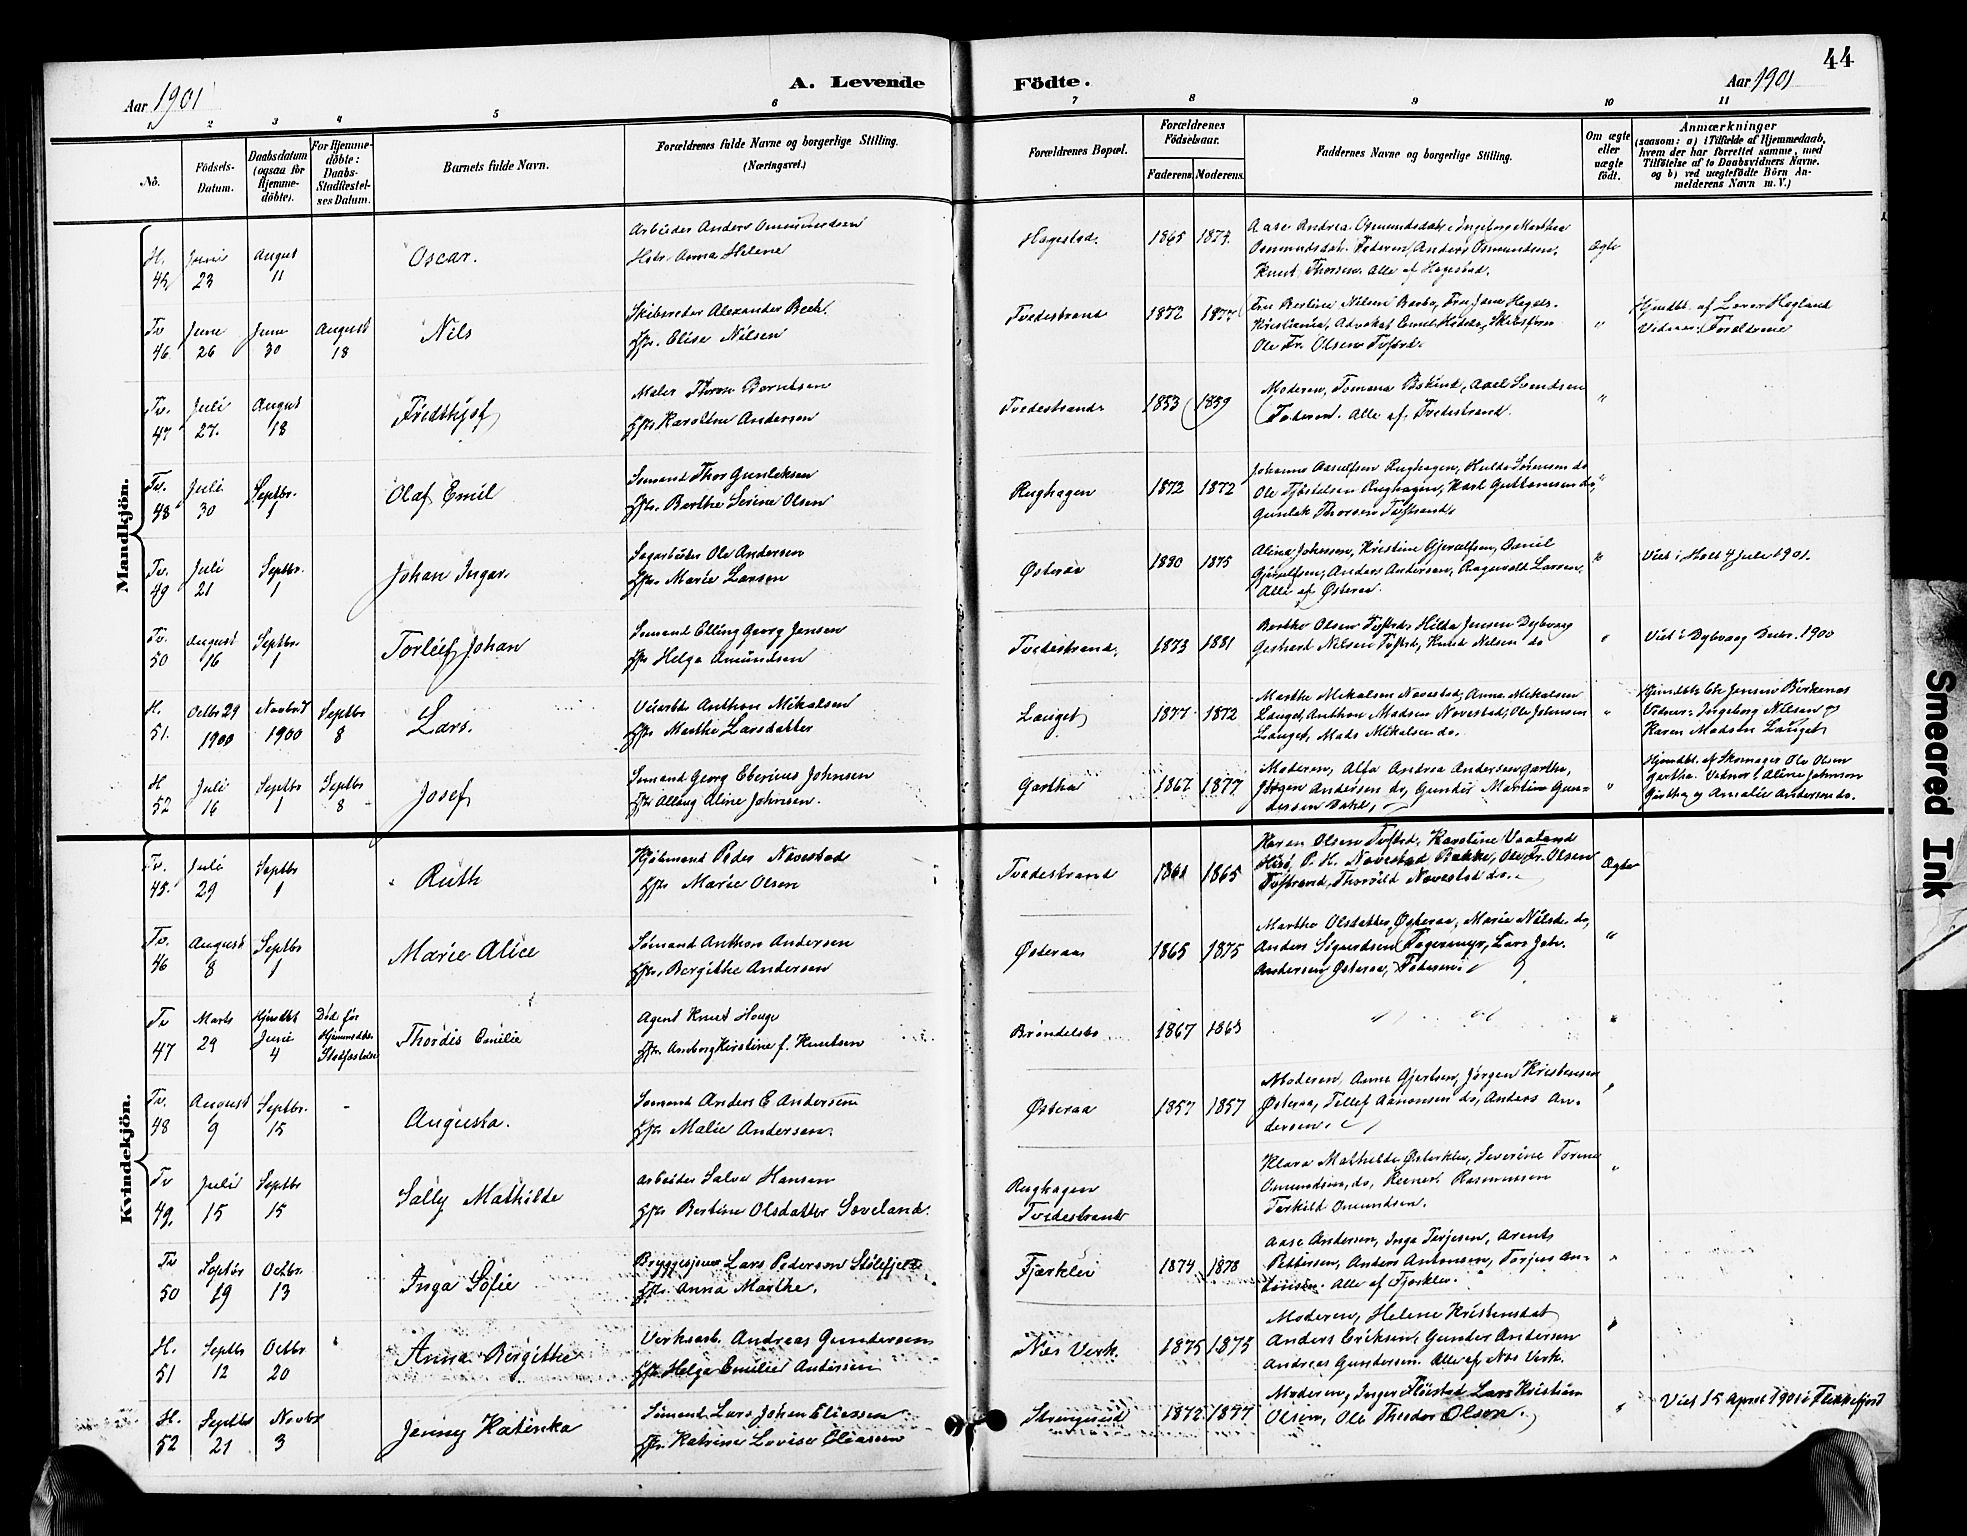 44
Aar 1901
A. Levende Födte.
Aar 1901
1 2 3 4 5 6 7 8 9 10 11
No.
Födsels-Datum.
Daabsdatum (ogsaa for Hjemme-döbte).
For Hjemme-döbte: Daabs-Stadfæstel-ses Datum.
Barnets fulde Navn.
Forældrenes fulde Navne og borgerlige Stilling.
(Næringsvei.)
Forældrenes Bopæl.
Forældrenes Födselsaar.
Faderens. Moderens.
Faddernes Navne og borgerlige Stilling.
Om ægte eller uægte födt.
Anmærkninger
(saasom: a) i Tilfælde af Hjemmedaab, hvem der har forrettet samme, med Tilföielse af to Daabsvidners Navne. og b) ved uægtefödte Börn Anmelderens Navn m. V.)
Mandkjön.
H. 45 Juni 23 August 11
Oscar.
Arbeider Anders Omundsen
Hstr. Anna Helene
Hagestad. 1865 1874
Aase Andrea Osmundsdat., Ingeborg Marthea
Osmundsdat. Faderen, Anders Osmundsen,
Knut Thorsen. Alle af Hagestad.
Ægte
Tv 46. Juni 26 Juni 30 August 18
Nils
Skibsreder Alexander Bech.
Hstr. Elise Nilsen
Tvedestrand 1872 1877
Fru Bertine Nilsen Barbo, Fru Jane
Kristiania, Advokat Emil Skibsfører
Ole Fr. Olsen Tvestrd.
"
Hjmdbt. af Hogland
Vidner: Forældrene
Tv. 47 Juli 27. August 18
Fridthjof
Maler Thoron Berntsen
Hstr Karoline Andersen
Tvedestrand 1853 1859
Moderen, Tomana Axel Svendsen
Faderen. Alle af Tvedestrand.
"
Tv. 48 Juli 30 Septbr. 1
Olaf Emil
Sømand Thor Gunleksen
Hstr. Berthe Serine Olsen
Rughagen 1872 1872
Johanne Aasulfsen Rughagen, Hulda Sørensen do
Ole Rughagen, Karl Guttormsen do,
Gunlek Thorsen Tvstrand.
"
Tv. 49 Juli 21 Septbr. 1
Johan Ingar.
Sagarbeider Ole Andersen
Hstr Marie Larsen
Østeraa 1880 1875
Alina Johnsen, Kristine Gjerulfsen, Daniel
Gjerulfsen, Anders Andersen, Ragnvald Larsen.
Alle af Østeraa.
"
Viet i Holt 4 Juli 1901.
Tv. 50 August 16 Septbr. 1
Torleif Johan
Sømand Elling Georg Jensen
Hstr Helga Amundsen
Tvedestrand. 1873 1881
Berthe Olsen Tvstrd, Hilda Jensen Dybvaag
Gerhard Nilsen Tvstrd, Knud Nilsen do
"
Viet i Dybvaag Decbr. 1900
H. 51. Octbr 29 1900 Novbr 1 1900 Septbr 8
Lars.
Anthon Mikalsen
Hstr Marthe Larsdatter
Lauget 1877 1872
Marthe Mikalsen Navestad, Anne Mikalsen
Lauget, Anthon Madsen Navestad, Ole Johnsen
Lauget, Mads Mikalsen do.
"
Hjmdbt. Chr Jensen Berkenæs
Vidner: Ingeborg Nilsen og
Karen Madsen Lauget
H 52 Juli 16 Septbr 1 Septbr 8
Josef
Sømand Georg Eberius Johnsen
Hstr Aline Johnsen.
Gartha 1867 1877
Moderen, Alfa Andrea Andersen Gartha,
Jørgen Andersen do, Gunder Martin Gun-
dersen Dahl,
"
Hjemdbt. af Skomager Ole Olsen
Gartha. Vidner: Aline Johnsen
Gartha og Amalie Andersen do.
Kvindekjön.
Tv. 45. Juli 29 Septbr 1
Ruth
Kjøbmand Peder Navestad
Hstr Marie Olsen
Tvedestrand 1861 1865
Karen Olsen Tvstrd, Karoline Vaaland
Hisø, P. H. Navestad Bakke, Ole Fr. Olsen
Tvstrand, Thorvald Navestad do.
Ægte
Tv. 46 August 8 Septbr 1
Marie Alice
Sømand Anthon Andersen
Hstr. Bergithe Andersen
Østeraa 1865 1875
Marthe Olsdatter Østeraa, Maria Nilsd. do,
Anders Sigurdsen Fagermyr, Lars Joh.
Andersen Østeraa, Faderen.
"
Tv 47 Marts 29 Hjmdbt Juni 4 Død før Hjemmedbs. Stadfæstelse
Thordis Emilie
Agent Knut Houge
Hstr. Amborg Kirstine f. Knutsen
Brøndelsbo 1867 1863
"
Tv. 48 August 9 Septbr. 15
Augusta.
Sømand Anders E Andersen
Hstr Malie Andersen.
Østeraa 1857 1857
Moderen, Anne Gjertsen, Jørgen Kristensen
Østeraa, Tellef Aanonsen do, Anders An-
dersen.
"
Tv 49. Juli 15 Septbr 15
Sally Mathilde
Arbeider Salve Hansen
Hstr Bertine Olsdatter Søveland.
Rughagen
Tvedestrand
Klara Mathilde Østerklev, Severine Torine
Omundsen, do, Reinert Rasmussen
Terkild Omundsen.
"
Tv 50 Septbr 19 Octbr. 13
Inga Sofie
Bryggesjouer Lars Pederson Stølefjell
Hstr. Anna Marthe.
Fjærklev 1874 1878
Aase Andersen, Inga Terjesen, Arent
Pettersen, Anders Antonsen, Torjus An-
tonsen. Alle af Fjærklev.
"
H. 51 Septbr 12 Octbr 20
Anna Bergithe
Verksarb. Andreas Gundersen
Hstr Helga Emilie Andersen
Næs Verk. 1875 1875
Moderen, Helene Kristensdat
Anders Eriksen, Gunder Andersen
Andreas Gundersen. Alle af Næs Verk.
"
H. 52 Septbr 21 Novbr 3
Jenny Katinka
Sømand Lars Johan Eliassen
Hstr. Katrine Lovise Eliassen
Strengereid 1872 1877
Moderen, Inger Fløistad Lars Kristian
Olsen, Ole Theodor Olsen.
"
Viet 15 April 1901 i Flekkefjord
Smeared Ink